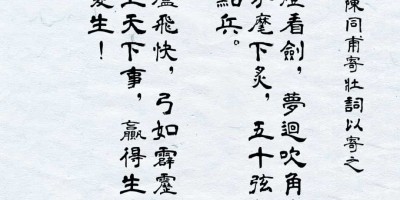 陳同甫寄壯詞以寄之
燈看劍，夢迴吹角
麾下炙，五十弦
點兵。
盧飛快，弓如霹靂
天下事，贏得生
發生！